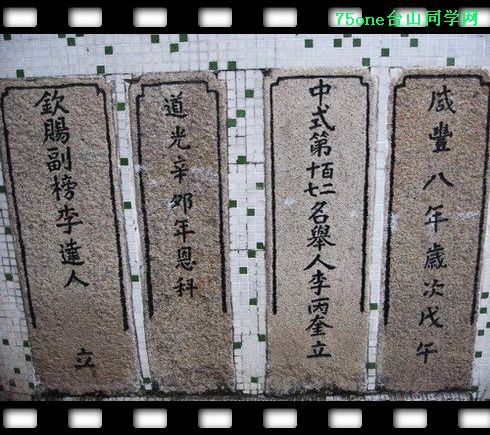 75one台山同学网
咸豐八年歲次戊午
中式第百二十七名舉人李丙奎立
道光辛卯年恩科
欽賜副榜李達人 立